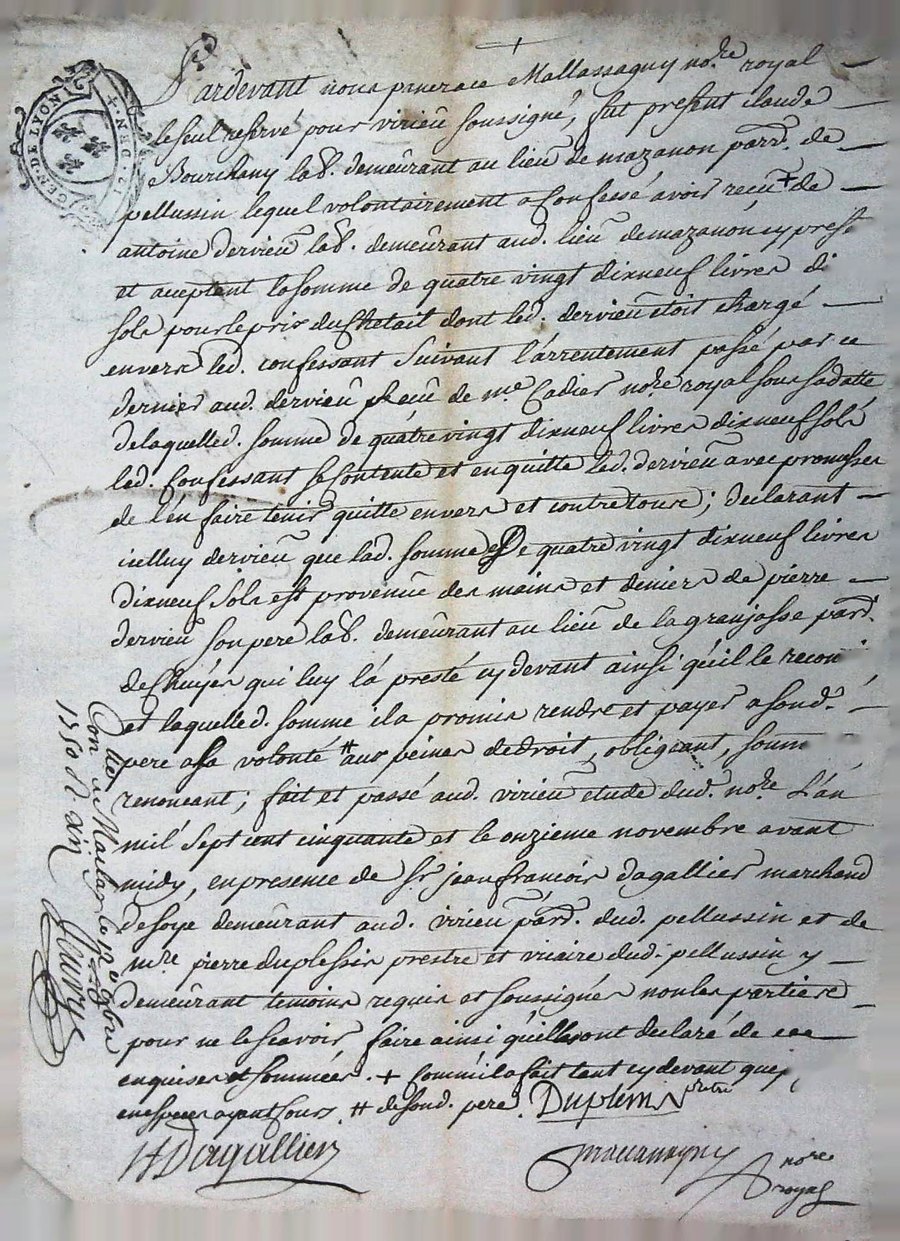 GEN. DE LYON
Pardevant nous Mallassagny no.re royal
le seul reservé pour virieu soussigné, fut present claude
Bourchany lab. demeurant au lieu de mazanon parr. de
pellussin lequel volontairement a confessé avoir receu + de
antoine dervieu lab. demeurant aud. lieu de mazanon cy present
et aceptent la somme de quatre vingt dixneuf livres di
sols pour le pris du chetail dont led. dervieu etoit chargé
envers led. confessant suivant l'arrentement passé par ce
dernier aud. dervieu receu de me. Cadier no.re royal sous sa datte
de laquelled. somme de quatre vingt dixneuf livres dixneuf sols
led. confessant se contente et en quitte led. dervieu avec promesses
de l'en faire tenir quitte envers et contre tous; declarant
icelluy dervieu que lad. somme de quatre vingt dixneuf livres
dixneuf sols est provenue des mains et deniers de pierre
dervieu son pere lab. demeurant au lieu de la granjasse parr.
de Chuyer qui luy l'a presté cy devant ainsi qu'il le recon
et laquelled. somme il a promis rendre et payer a sond.
pere a sa volonté # aux peines de droit, obligeant, soum
renoncant; fait et passé aud. virieu etude dud. no.re L'an
mil sept cent cinquante et le onzieme novembre avant
midy, en presence de Sr. jean francois dagallier marchand
de soye demeurant aud. virieu parr. dud. pellussin et de
m.re pierre duplessis prestre et vicaire dud. pellussin y
demeurant temoins requis et soussignés non les parties
pour ne le scavoir faire ainsi qu'elles ont declaré de ce
enquises et sommées. + comme il a fait tant cy devant que
en especes ayant cours # de sond. pere. Duplessis
Dagallier
Mallassagny no.re
royal
Con.lé a le 12e 9bre
1750 d. xiij